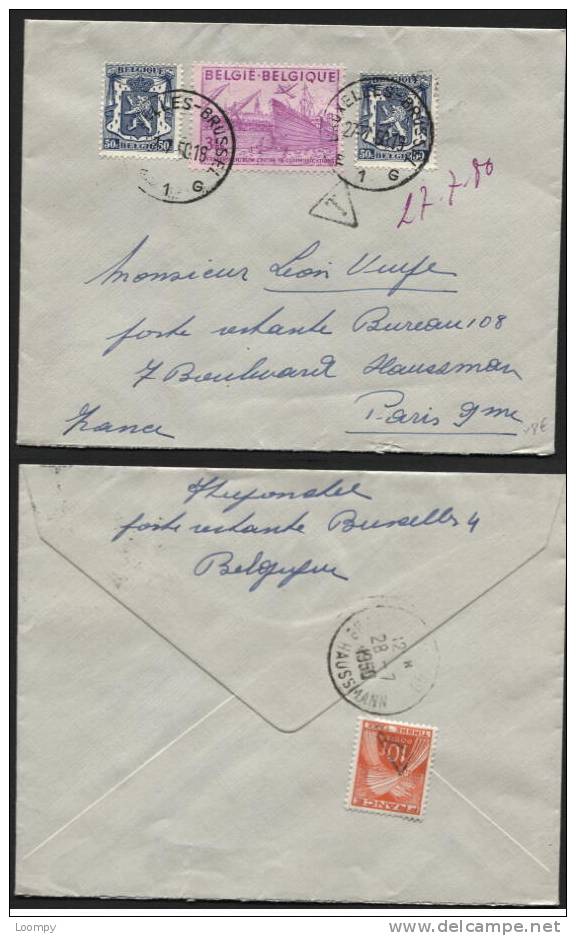 BELGIQUE
50c 50
BELGIE-BELGIQUE
BELGIQUE
50c 50
LES-BRUSSEL
50.18
1 G
BRUXELLES-BRUSSEL
1 G
T
27.7.50
Monsieur Léon
poste restante Bureau 108
7 Boulevard Haussman
Paris 9me
France
18€
poste restante Bruxelles 4
Belgique
12 H
28 - 7
1950
HAUSSMANN
TIMBRE TAXE
10F
FRANCE
Loompy
www.delcampe.net